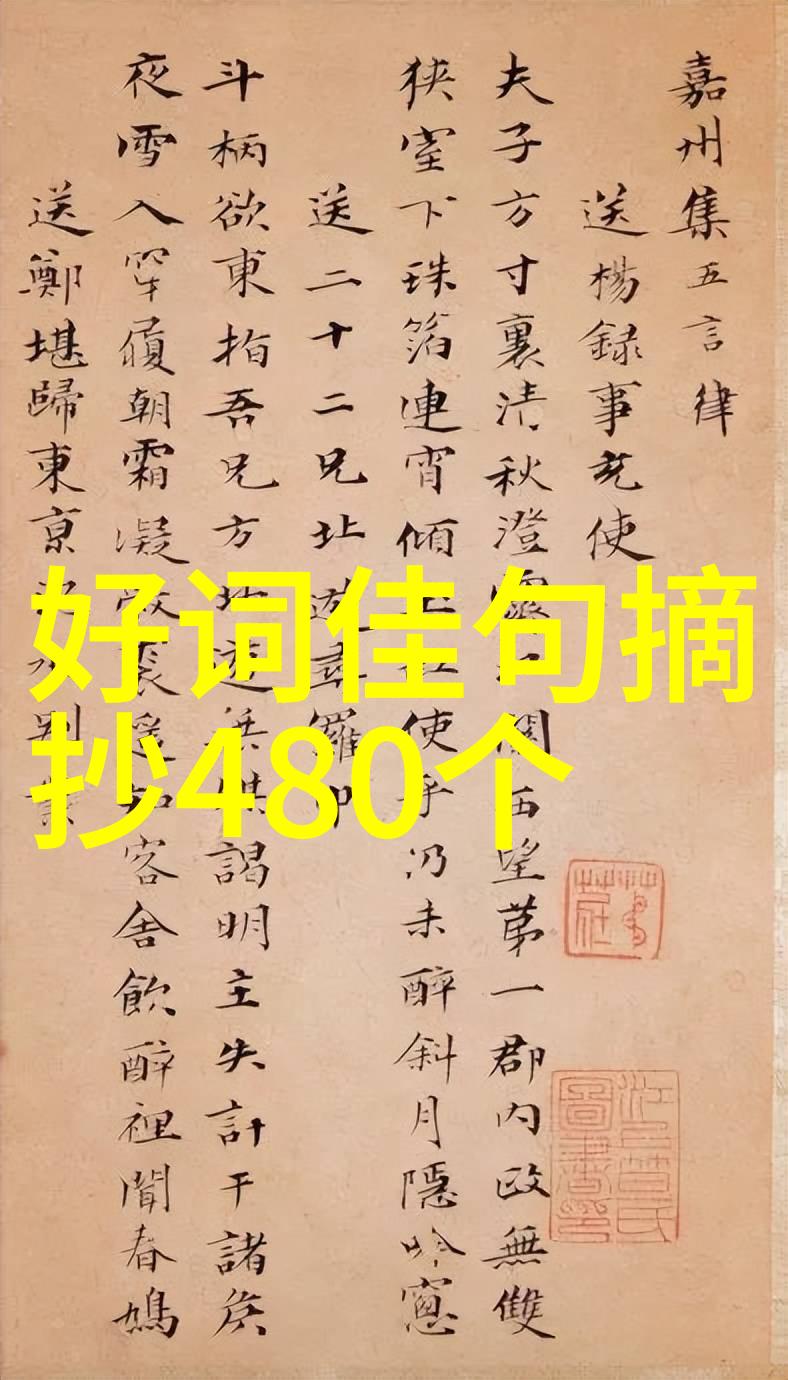 嘉州集五言律
送楊録事充使
夫子方寸裏清秋澄關西望第一郡内政無雙
狹室下珠箔連宵傾使乎仍未醉斜月隱吟窻
送二十二兄北遊尋羅中
斗柄欲東指吾兄方北遊無媒謁明主失計干諸侯
夜雪入穿履朝霜凝敝裘遥知客舍飲醉裡聞春鳩
送鄭堪歸東京水別業
好词佳句摘
抄480个